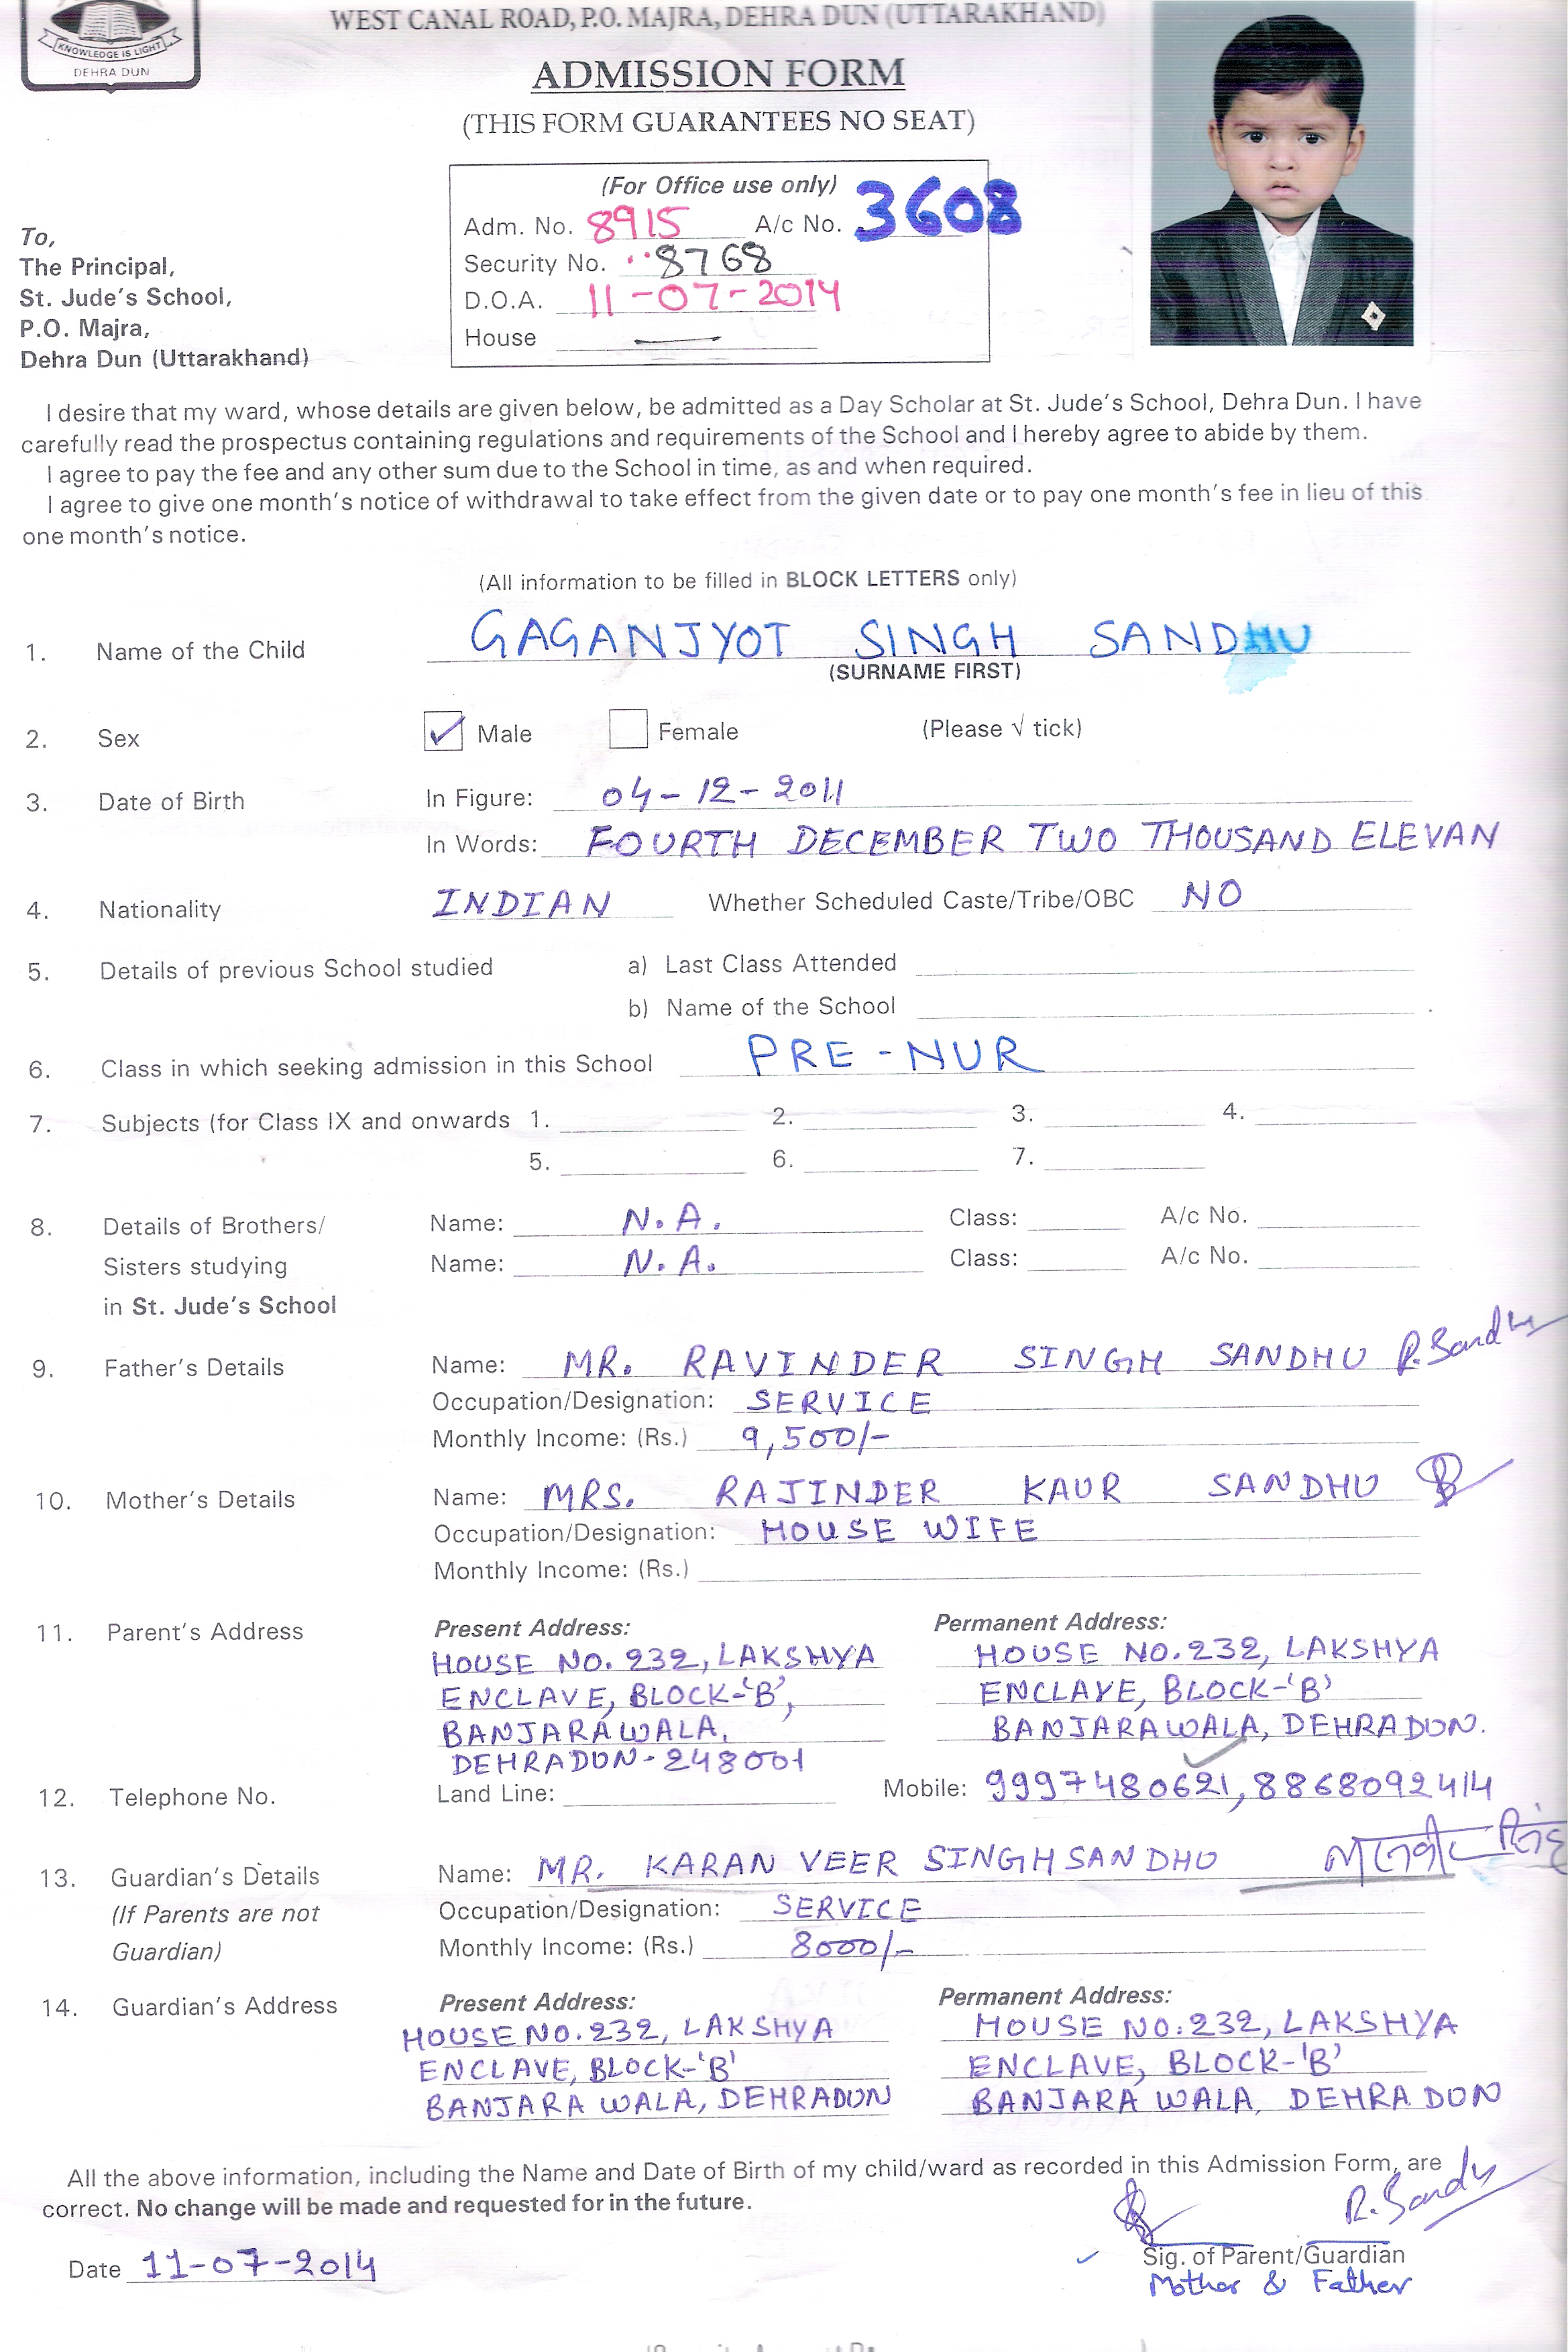 WEST CANAL ROAD, P.O. MAJRA, DEHRA DUN (UTTARAKHAND)
KNOWLEDGE IS LIGHT
DEHRA DUN
ADMISSION FORM
(THIS FORM GUARANTEES NO SEAT)
(For Office use only)
Adm. No. 8915 A/c No. 3608
Security No. 8768
D.O.A. 11-07-2014
House —
To,
The Principal,
St. Jude's School,
P.O. Majra,
Dehra Dun (Uttarakhand)
I desire that my ward, whose details are given below, be admitted as a Day Scholar at St. Jude's School, Dehra Dun. I have
carefully read the prospectus containing regulations and requirements of the School and I hereby agree to abide by them.
I agree to pay the fee and any other sum due to the School in time, as and when required.
I agree to give one month's notice of withdrawal to take effect from the given date or to pay one month's fee in lieu of this
one month's notice.
(All information to be filled in BLOCK LETTERS only)
1. Name of the Child GAGANJYOT SINGH SANDHU
(SURNAME FIRST)
2. Sex ✓ Male Female (Please √ tick)
3. Date of Birth In Figure: 04-12-2011
In Words: FOURTH DECEMBER TWO THOUSAND ELEVAN
4. Nationality INDIAN Whether Scheduled Caste/Tribe/OBC NO
5. Details of previous School studied a) Last Class Attended
b) Name of the School
6. Class in which seeking admission in this School PRE-NUR
7. Subjects (for Class IX and onwards 1. 2. 3. 4.
5. 6. 7.
8. Details of Brothers/ Name: N.A. Class: A/c No.
Sisters studying Name: N.A. Class: A/c No.
in St. Jude's School
9. Father's Details Name: MR. RAVINDER SINGH SANDHU R.Sandhu
Occupation/Designation: SERVICE
Monthly Income: (Rs.) 9,500/-
10. Mother's Details Name: MRS. RAJINDER KAUR SANDHU
Occupation/Designation: HOUSE WIFE
Monthly Income: (Rs.)
11. Parent's Address Present Address: Permanent Address:
HOUSE NO. 232, LAKSHYA HOUSE NO. 232, LAKSHYA
ENCLAVE, BLOCK-'B', ENCLAVE, BLOCK-'B'
BANJARAWALA, BANJARAWALA, DEHRADUN.
DEHRADUN-248001
12. Telephone No. Land Line: Mobile: 9997480621, 8868092414
13. Guardian's Details Name: MR. KARAN VEER SINGH SANDHU
(If Parents are not Occupation/Designation: SERVICE
Guardian) Monthly Income: (Rs.) 8000/-
14. Guardian's Address Present Address: Permanent Address:
HOUSE NO. 232, LAKSHYA HOUSE NO: 232, LAKSHYA
ENCLAVE, BLOCK-'B' ENCLAVE, BLOCK-'B'
BANJARA WALA, DEHRADUN BANJARA WALA, DEHRA DUN
All the above information, including the Name and Date of Birth of my child/ward as recorded in this Admission Form, are
correct. No change will be made and requested for in the future.
R.Sandhu
Date 11-07-2014 Sig. of Parent/Guardian
Mother & Father